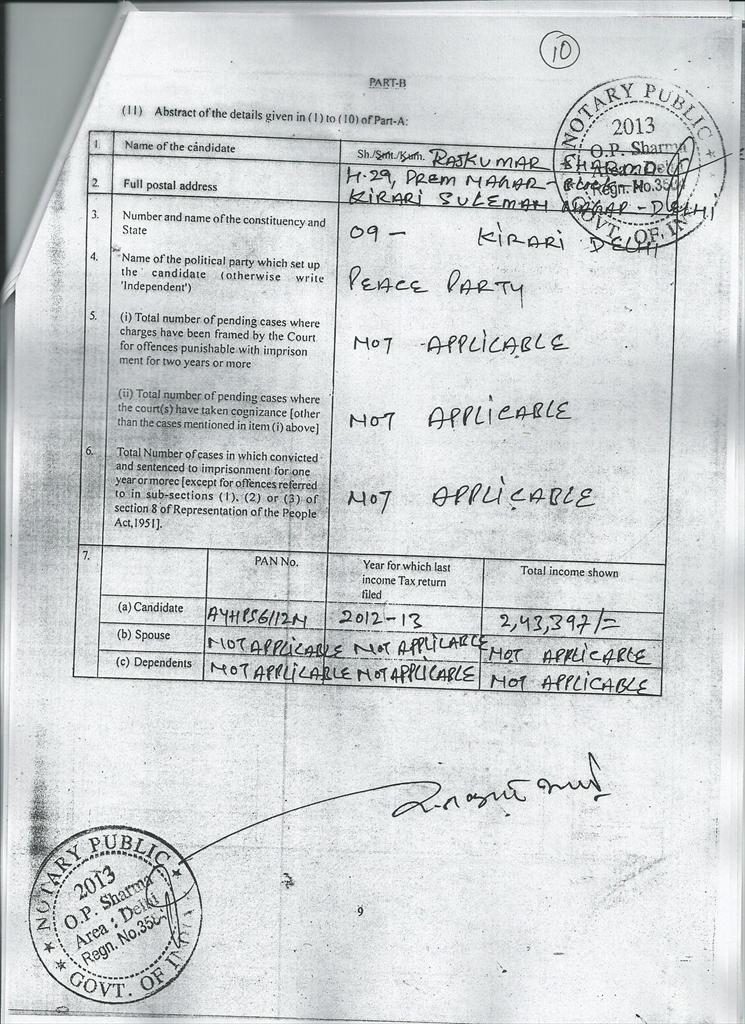 10
PART-B
(11) Abstract of the details given in (1) to (10) of Part-A:
1. Name of the candidate Sh./Smt./Kum. RAJKUMAR SHARMA
2. Full postal address H-29, PREM NAGAR-
KIRARI SULEMAN NAGAR - DELHI
3. Number and name of the constituency and
State
09 - KIRARI DELHI
4. Name of the political party which set up
the candidate (otherwise write
'Independent')
PEACE PARTY
5. (i) Total number of pending cases where
charges have been framed by the Court
for offences punishable with imprison
ment for two years or more
NOT APPLICABLE
(ii) Total number of pending cases where
the court(s) have taken cognizance [other
than the cases mentioned in item (i) above]
NOT APPLICABLE
6. Total Number of cases in which convicted
and sentenced to imprisonment for one
year or morec [except for offences referred
to in sub-sections (1), (2) or (3) of
section 8 of Representation of the People
Act,1951].
NOT APPLICABLE
7. PAN No. Year for which last
income Tax return
filed
Total income shown
(a) Candidate AYHPS6112N 2012-13 2,43,397/=
(b) Spouse NOT APPLICABLE NOT APPLICABLE NOT APPLICABLE
(c) Dependents NOT APPLICABLE NOT APPLICABLE NOT APPLICABLE
NOTARY PUBLIC
2013
O.P. Sharma
Area : Delhi
Regn. No.3504
GOVT. OF INDIA
NOTARY PUBLIC
2013
O.P. Sharma
Area : Delhi
Regn. No.350
GOVT. OF INDIA
9